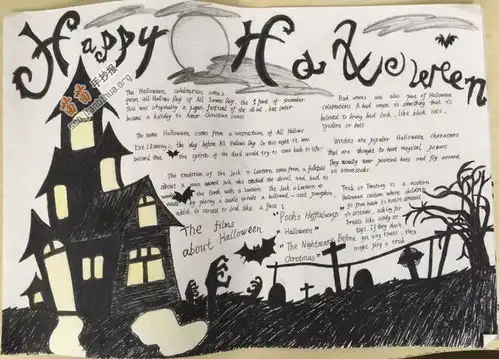 Happy Halloween
The Halloween celebration comes
from all Hallows Day of All Saints Day, the 1 first of November.
This was originally a pagan festival of the dead, but later
became a holiday to honor Christian saints
The name Halloween comes from a contraction of All Hallows
Eve (Evening), the day before All Hallows Day. On this night it was
believed that the spirits of the dead would try to come back to life!
The tradition of the Jack o' Lantern comes from a folktale
about a man named Jack who tricked the devil and had to
the Earth with a lantern. The Jack o Lantern is
by placing a candle inside a hollowed-out pumpkin,
which is carved to look like a face!
The films
about Halloween
"Poohs Heffalump
"Halloween"
"The Nightmare
Christmas"
Bad omens are also part of Halloween
celebrations. A bad omen is something that is
believed to bring bad luck, like black cats,
spiders or bats
Witches are popular Halloween characters
that are thought to have magical powers
They usually wear pointed hats and fly around
on broomsticks
Trick or Treating is a modern
Halloween custom where children
go from house to house dressed
in costume, asking for
treats like candy or
toys. If they don't
get any treats, they
might play a trick
手抄报